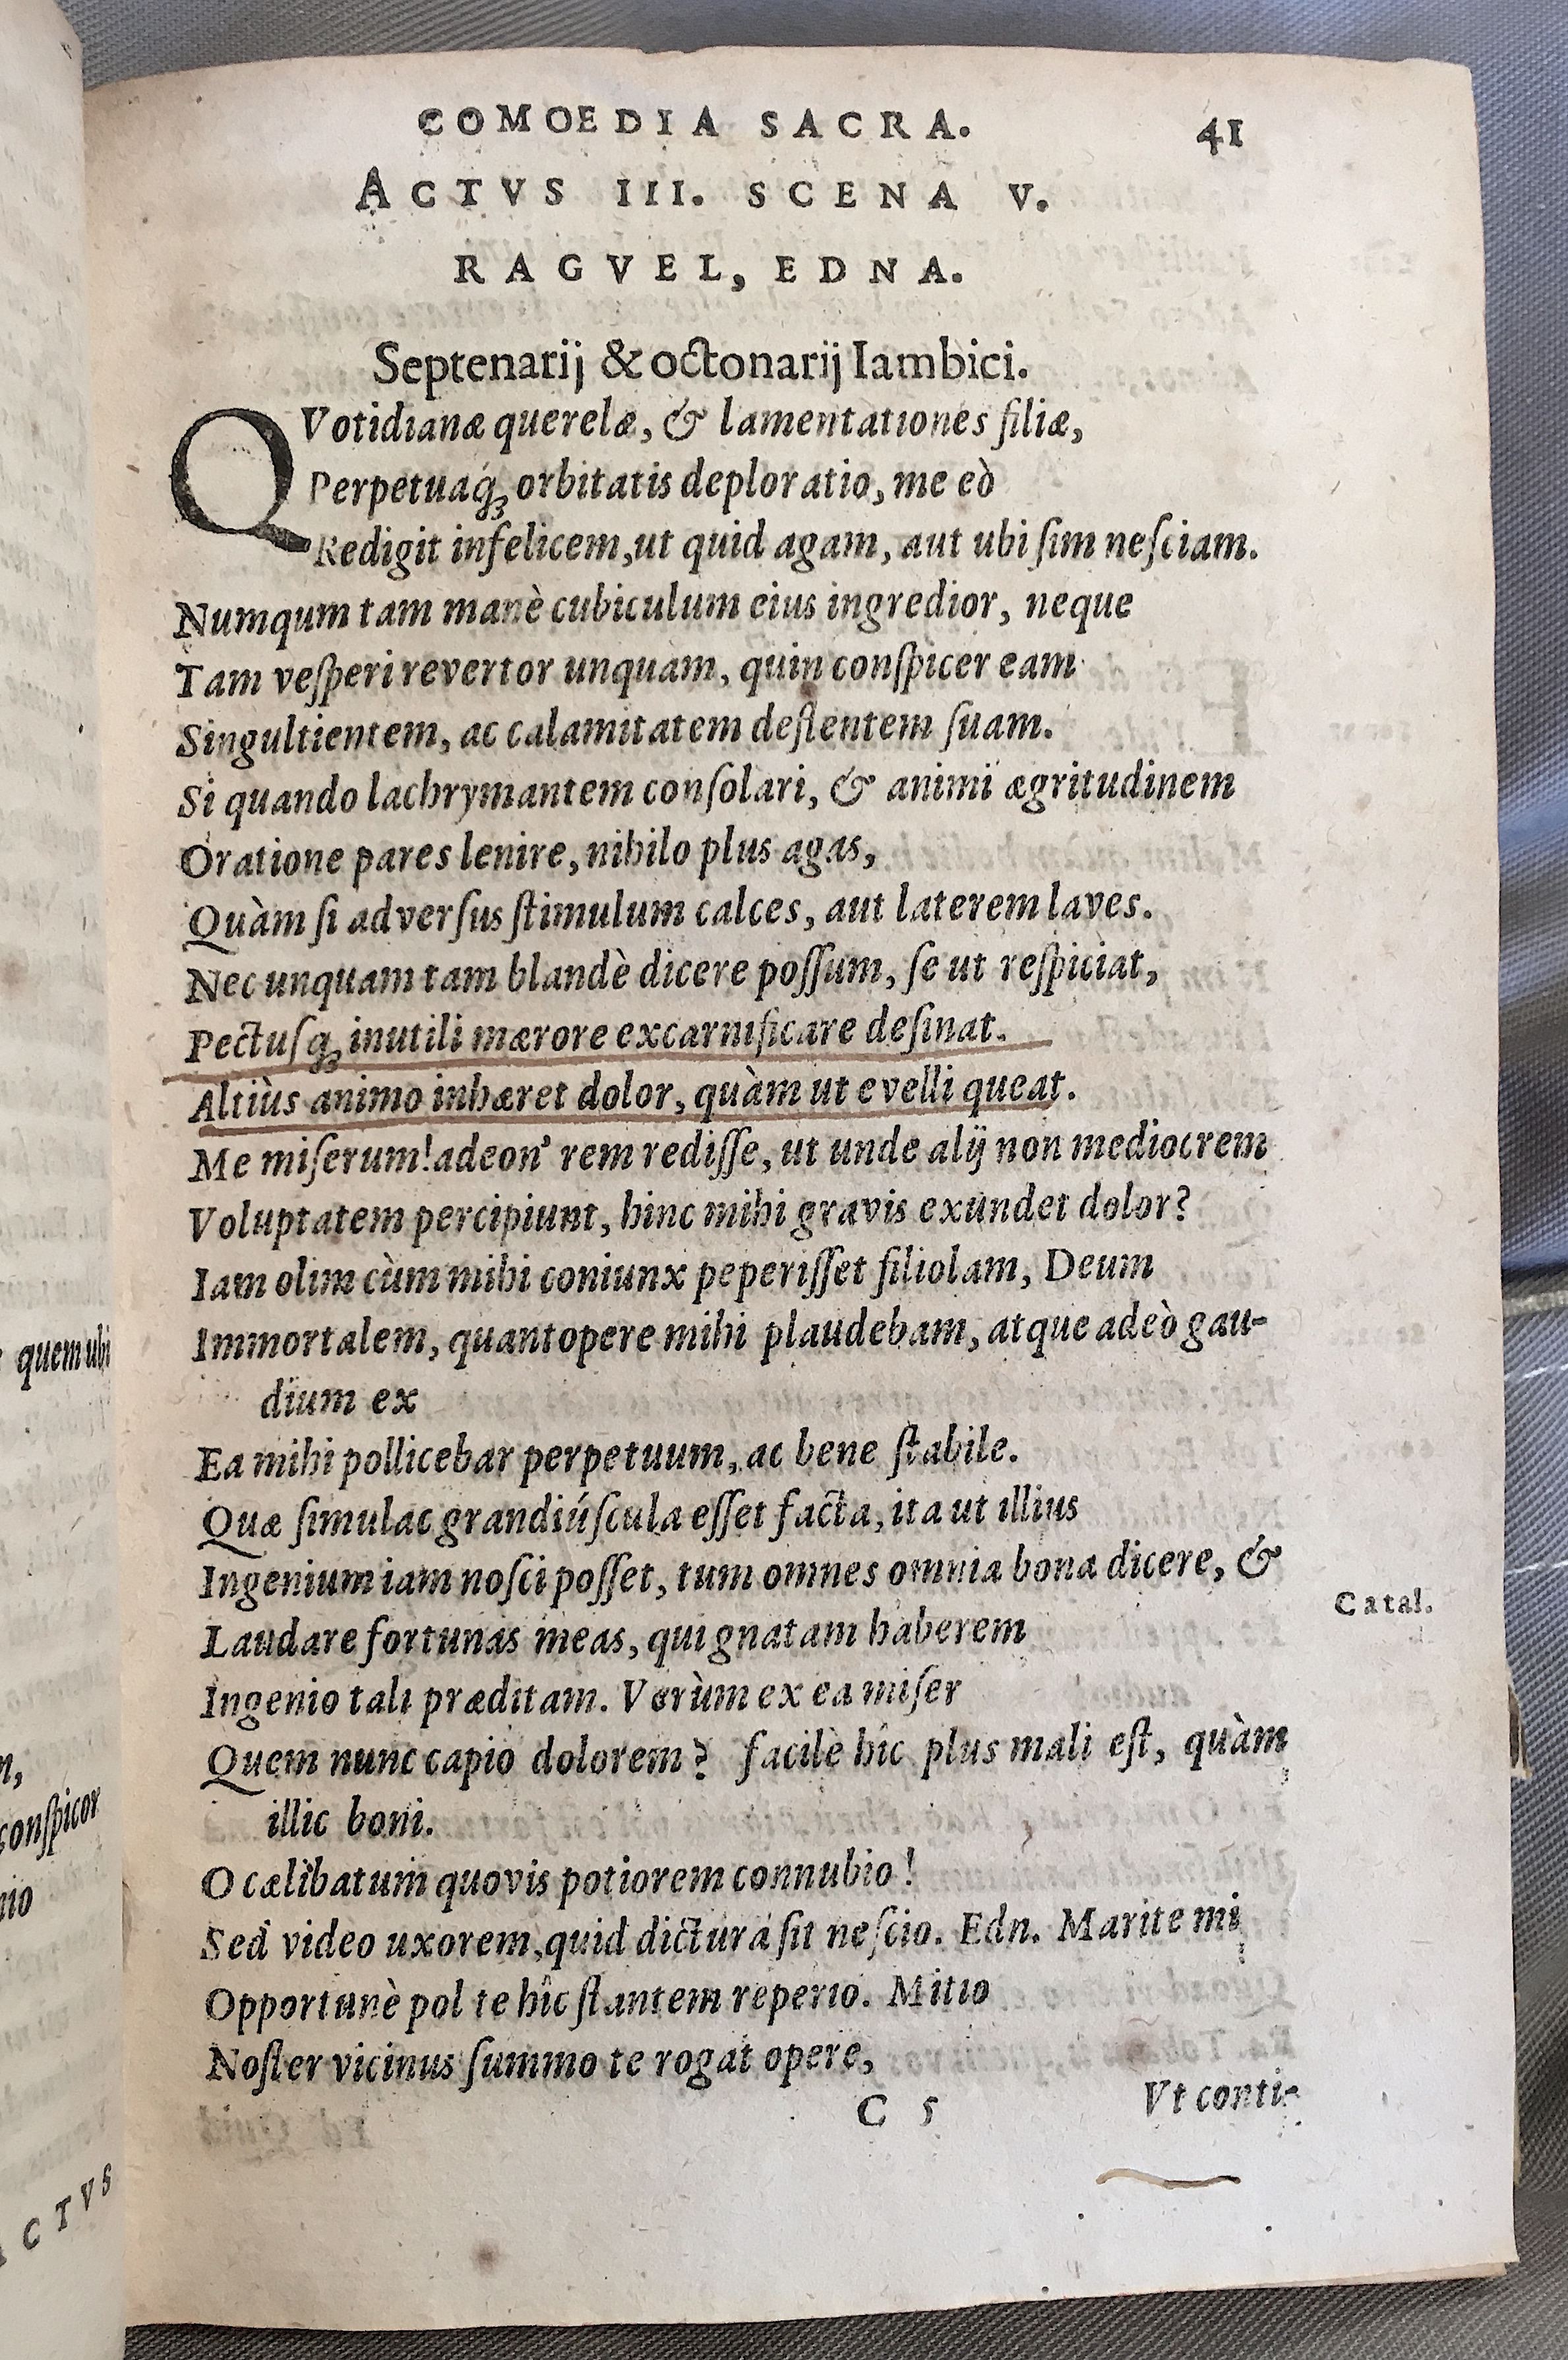 COMOEDIA SACRA. 41
ACTVS III. SCENA V.
RAGVEL, EDNA.
Septenarij & octonarij Iambici.
QVotidianæ querelæ, & lamentationes filiæ,
Perpetuaq́ꝫ orbitatis deploratio, me eò
Redigit infelicem, ut quid agam, aut ubi ſim neſciam.
Numqum tam manè cubiculum eius ingredior, neque
Tam veſperi revertor unquam, quin conſpicer eam
Singultientem, ac calamitatem deflentem ſuam.
Si quando lachrymantem conſolari, & animi ægritudinem
Oratione pares lenire, nihilo plus agas,
Quàm ſi adverſus ſtimulum calces, aut laterem laves.
Nec unquam tam blandè dicere poſſum, ſe ut reſpiciat,
Pectuſqꝫ inutili mærore excarnificare deſinat.
Altiùs animo inhæret dolor, quàm ut evelli queat.
Me miſerum! adeon' rem rediſſe, ut unde alij non mediocrem
Voluptatem percipiunt, hinc mihi gravis exundet dolor?
Iam olim cùm mihi coniunx peperiſſet filiolam, Deum
Immortalem, quantopere mihi plaudebam, atque adeò gau-
dium ex
Ea mihi pollicebar perpetuum, ac bene ſtabile.
Quæ ſimulac grandiúſcula eſſet facta, ita ut illius
Ingenium iam noſci poſſet, tum omnes omnia bona dicere, &
Catal.
Laudare fortunas meas, qui gnatam haberem
Ingenio tali præditam. Verùm ex ea miſer
Quem nunc capio dolorem? facilè hîc plus mali eſt, quàm
illic boni.
O cælibatum quovis potiorem connubio!
Sed video uxorem, quid dictura ſit neſcio. Edn. Marite mi
Opportunè pol te hîc ſtantem reperio. Mitio
Noſter vicinus ſummo te rogat opere,
C 5 Vt conti-
quem ubi
conſpicor
ACTVS